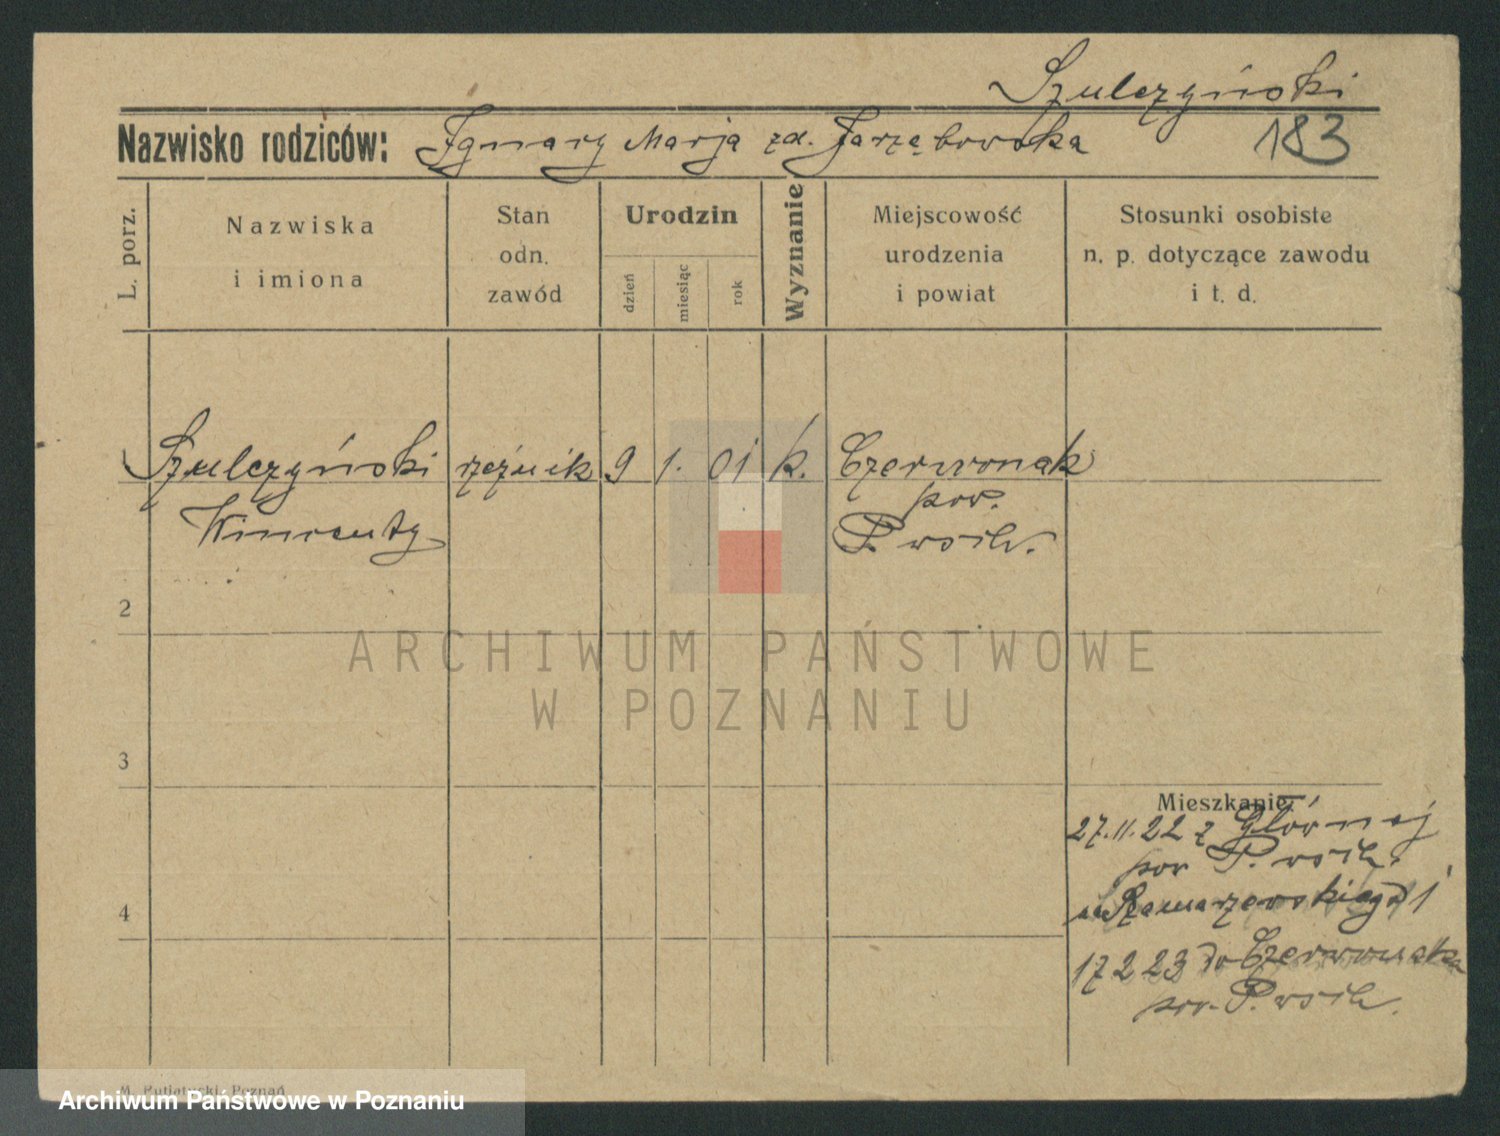 Szulczyński
Nazwisko rodziców: Ignacy Marja zd. Jarzębowska 183
L. porz.
Nazwiska
i imiona
Stan
odn.
zawód
Urodzin
dzień
miesiąc
rok
Wyznanie
Miejscowość
urodzenia
i powiat
Stosunki osobiste
n. p. dotyczące zawodu
i t. d.
1 Szulczyński rzeźnik 9 1. 01 k. Czerwonak
pow.
Wincenty P. wsch.
2
ARCHIWUM PAŃSTWOWE
W POZNANIU
3
Mieszkanie
27.11.22 z Głównej
pow P. wsch.
Szamarzewskiego 1
4
17 2 23 do Czerwonaka
pow. P. wsch.
M. Putiatycki, Poznań
Archiwum Państwowe w Poznaniu